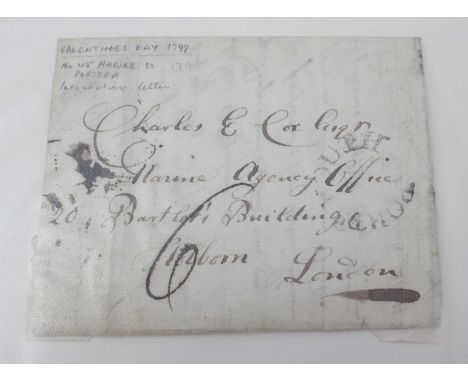 VALENTINES DAY 1798
No 45 HAWKE St. 179
PORTSEA
letter
Charles E Cox Esqr
Marine Agency Office
20 Bartlets Buildings
Holborn
London
6